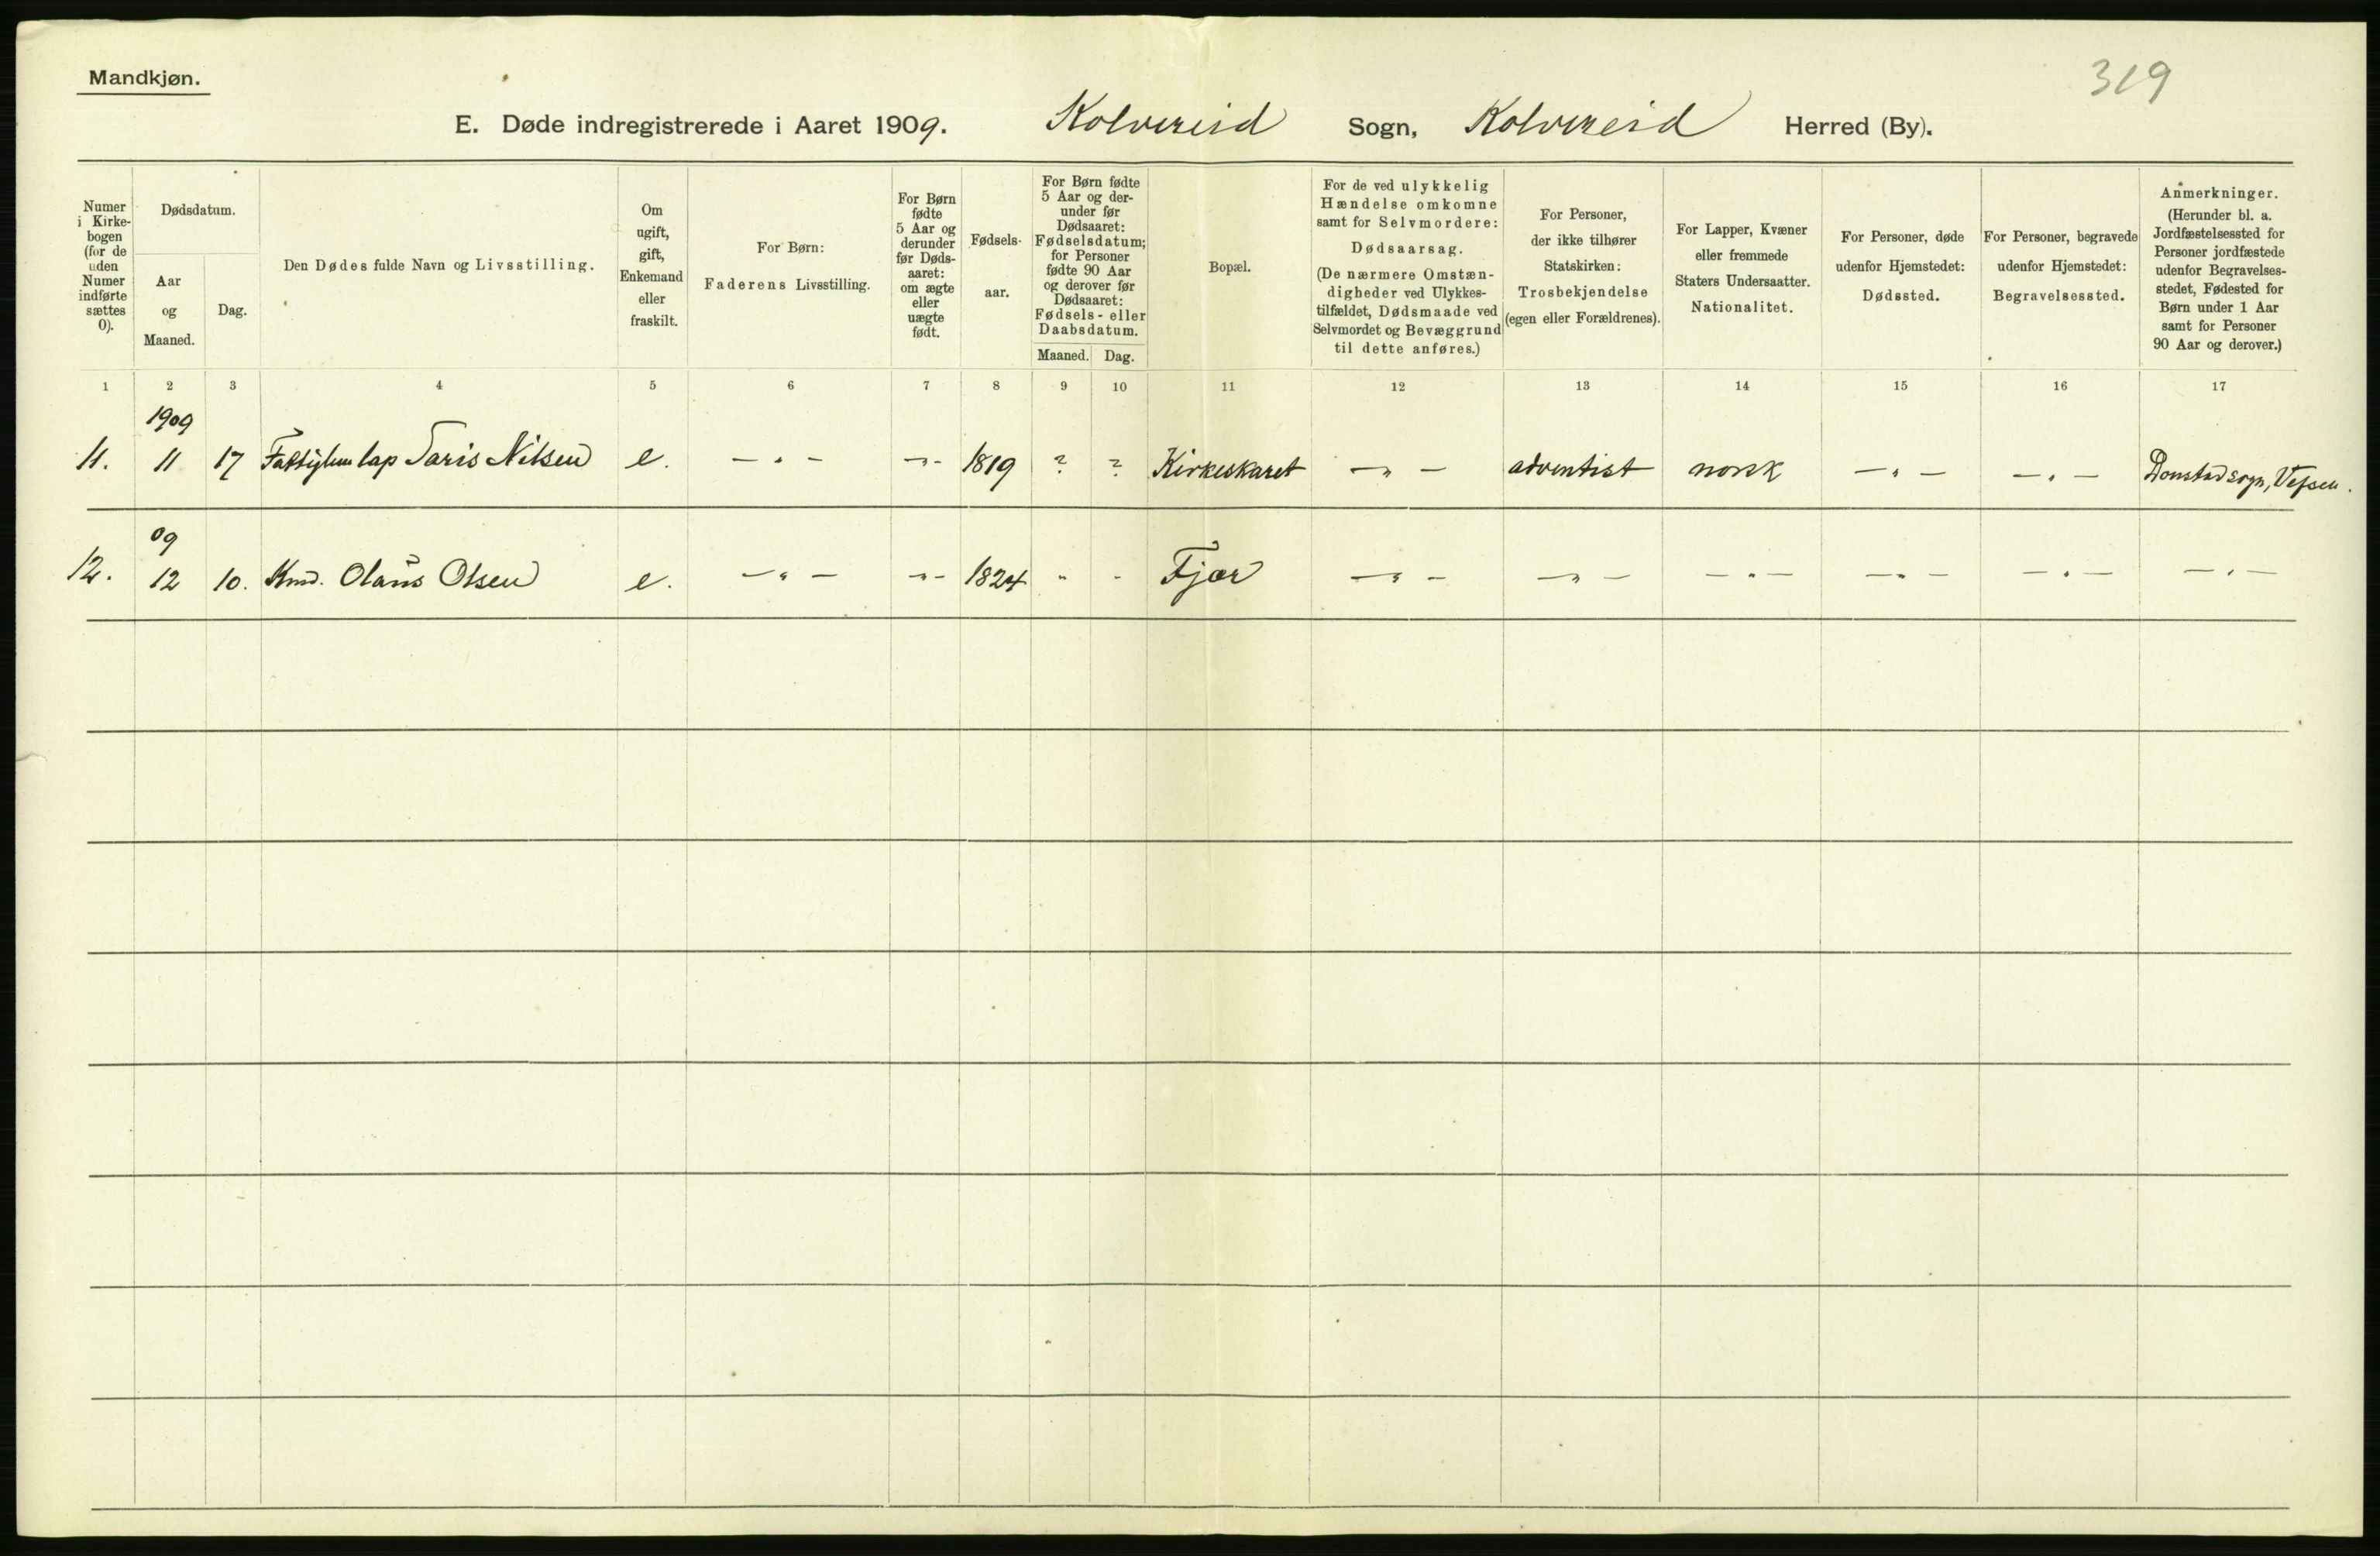 Mandkjøn.
319
E. Døde indregistrerede i Aaret 1909. Kolvereid Sogn, Kolvereid Herred (By).
Numer
i Kirke-
bogen
(for de
uden
Numer
indførte
sættes
0).
Dødsdatum.
Aar
og
Maaned.
Dag.
Den Dødes fulde Navn og Livsstilling.
Om
ugift,
gift,
Enkemand
eller
fraskilt.
For Børn:
Faderens Livsstilling.
For Børn
fødte
5 Aar og
derunder
før Døds-
aaret:
om ægte
eller
uægte
født.
Fødsels-
aar.
For Børn fødte
5 Aar og der-
under før
Dødsaaret:
Fødselsdatum;
for Personer
fødte 90 Aar
og derover før
Dødsaaret:
Fødsels- eller
Daabsdatum.
Maaned. Dag.
Bopæl.
For de ved ulykkelig
Hændelse omkomne
samt for Selvmordere:
Dødsaarsag.
(De nærmere Omstæn-
digheder ved Ulykkes-
tilfældet, Dødsmaade ved
Selvmordet og Bevæggrund
til dette anføres.)
For Personer,
der ikke tilhører
Statskirken:
Trosbekjendelse
(egen eller Forældrenes).
For Lapper, Kvæner
eller fremmede
Staters Undersaatter.
Nationalitet.
For Personer, døde
udenfor Hjemstedet:
Dødssted.
For Personer, begravede
udenfor Hjemstedet:
Begravelsessted.
Anmerkninger.
(Herunder bl. a.
Jordfæstelsessted for
Personer jordfæstede
udenfor Begravelses-
stedet, Fødested for
Børn under 1 Aar
samt for Personer
90 Aar og derover.)
1 2 3 4 5 6 7 8 9 10 11 12 13 14 15 16 17
1909
11. 11 17 lap Nilsen e. — " — — " — 1819 ? ? Kirkeskaret — " — adventist norsk — " — — " — Vefsen.
09
12. 12 10. Kmd. Olaus Olsen e. — " — — " — 1824 " - Fjær — " — — " — — " — — " — — " — — " —